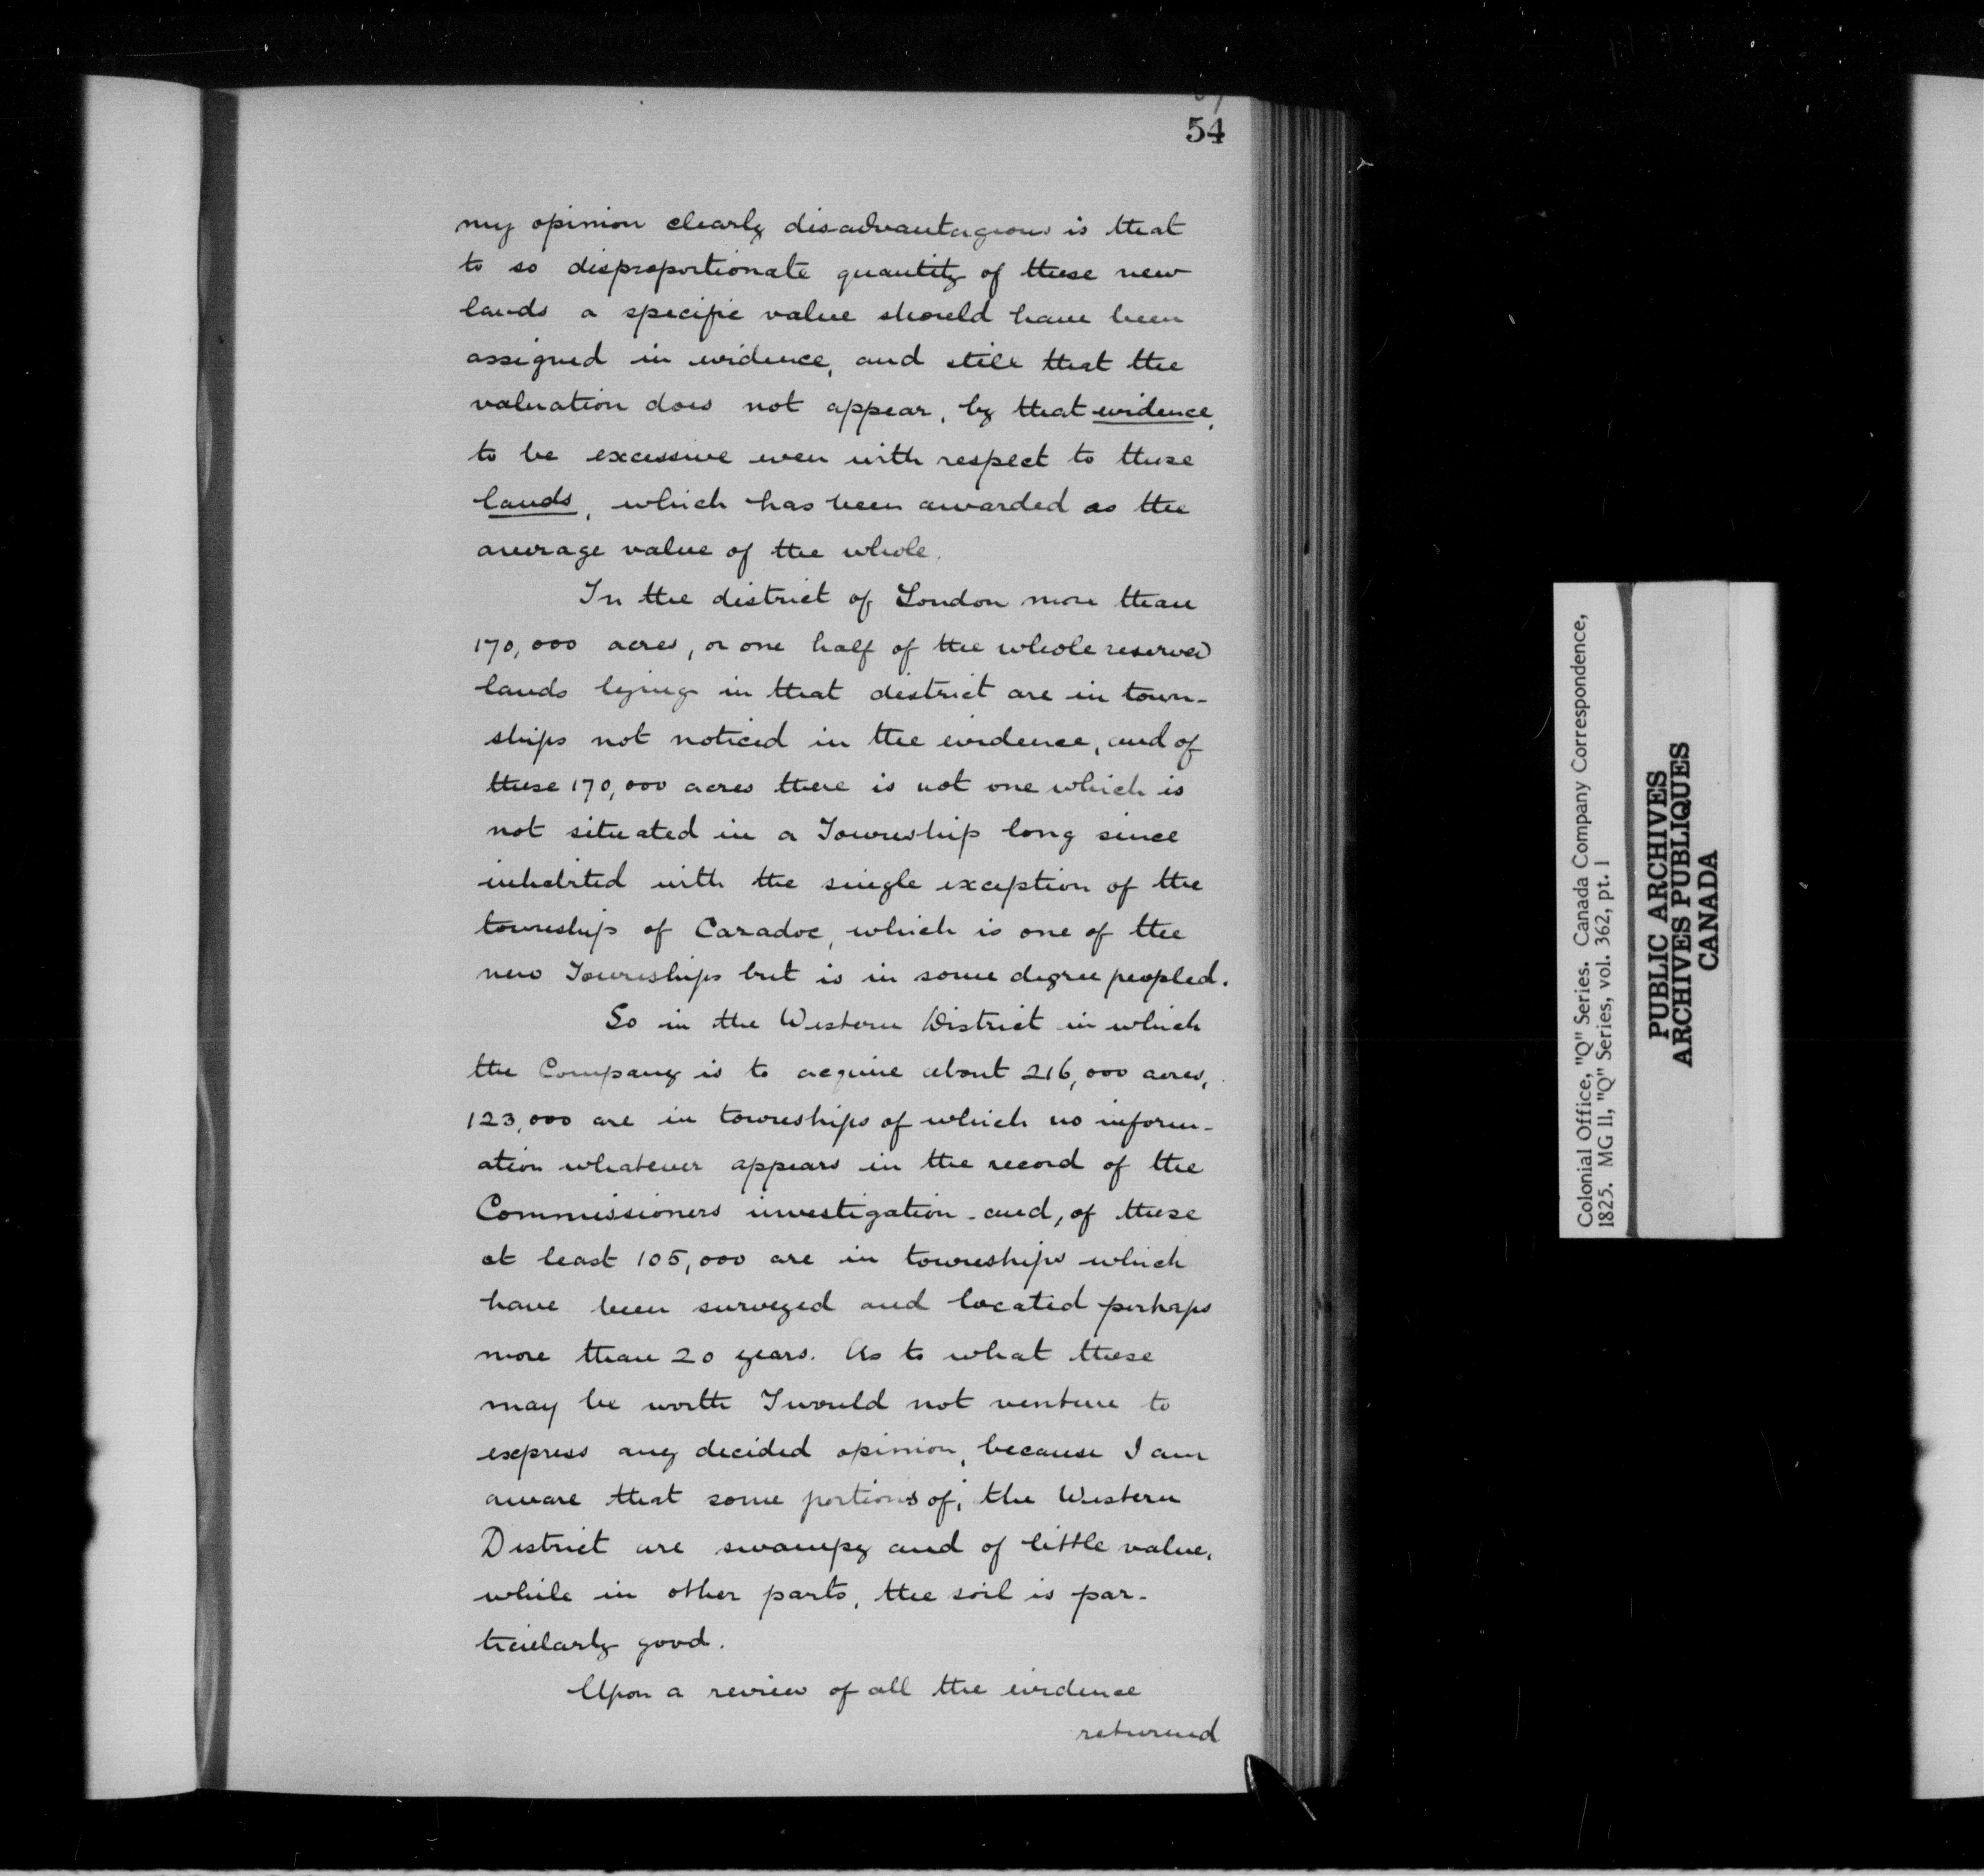 54
my opinion clearly disadvantageous is that
to so disproportionate quantity of these new
lands a specific value should have been
assigned in evidence, and still that the
valuation does not appear, by that evidence,
to be excessive even with respect to these
lands, which has been awarded as the
average value of the whole.
In the district of London more than
170,000 acres, or one half of the whole reserved
lands lying in that district are in town-
ships not noticed in the evidence, and of
these 170,000 acres there is not one which is
not situated in a Township long since
inhabited with the single exception of the
township of Caradoc, which is one of the
new Townships but is in some degree peopled.
So in the Western District in which
the Company is to acquire about 216,000 acres,
123,000 are in townships of which no inform-
ation whatever appears in the record of the
Commissioners investigation - and, of these
at least 105,000 are in townships which
have been surveyed and located perhaps
more than 20 years. As to what these
may be worth I would not venture to
express any decided opinion, because I am
aware that some portions of, the Western
District are swampy and of little value,
while in other parts, the soil is par-
ticularly good.
Upon a review of all the evidence
returned
Colonial Office, "Q" Series. Canada Company Correspondence,
1825. MG 11, "Q" Series, vol. 362, pt. 1
PUBLIC ARCHIVES
ARCHIVES PUBLIQUES
CANADA